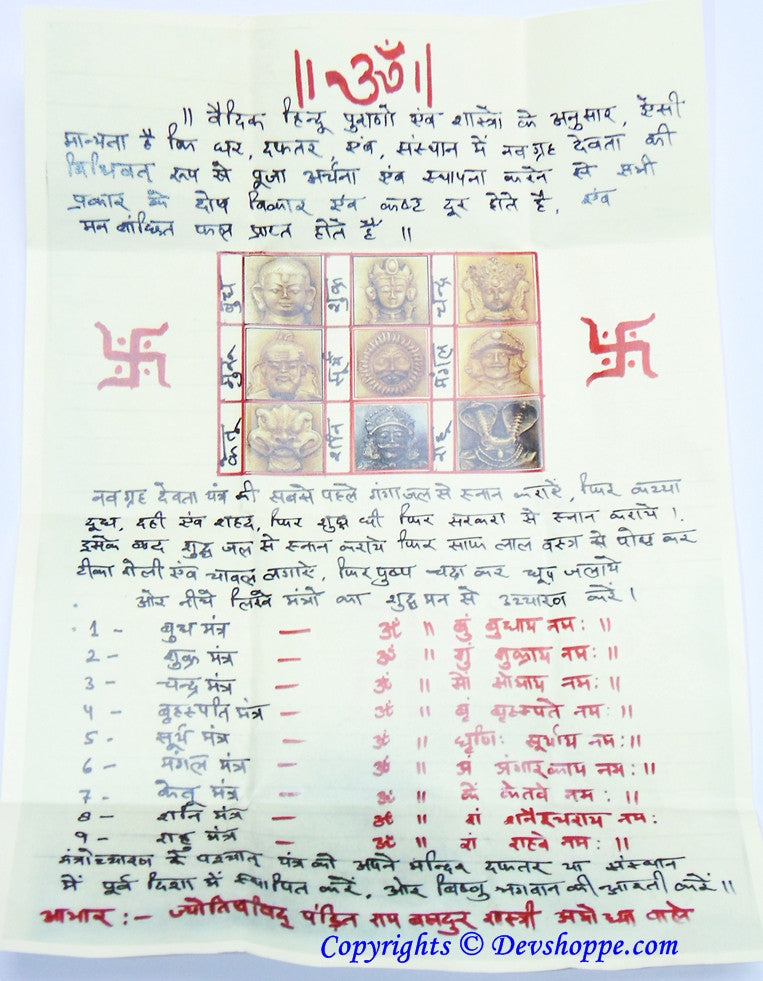 || ॐ ||
|| वैदिक हिन्दू पुराणों एंव शास्त्रों के अनुसार, ऐंसी
मान्यता है कि घर, दफतर, एंव, संस्थान में नव ग्रह देवता की
विधिवत रूप से पूजा अर्चना एंव स्थापना करने से सभी
प्रकार के दोष विकार एंव कष्ट दूर होते है, एंव
मन वांछित फल प्राप्त होते है ||
बुध शुक्र चन्द्र
गुरू सूर्य मंगल
केतू शनि राहू
नव ग्रह देवता यंत्र की सबसे पहले गंगाजल से स्नान करायें, फिर कच्चा
दूध, दही एंव शहद, फिर शुद्ध घी फिर सरकरा से स्नान कराये |
इसके बाद शुद्ध जल से स्नान कराये फिर साफ लाल वस्त्र से पोंछ कर
टीका रोली एंव चावल लगायें, फिर पुष्प चढ़ा कर धूप जलाये
ओर नीचे लिखे मंत्रो का शुद्ध मन से उच्चारण करें |
1 - बुध मंत्र — ॐ || बुं बुधाय नमः ||
2 - शुक्र मंत्र — ॐ || शुं शुक्राय नमः ||
3 - चन्द्र मंत्र — ॐ || सों सोमाय नमः ||
4 - बृहस्पति मंत्र — ॐ || बृं बृहस्पते नमः ||
5 - सूर्य मंत्र — ॐ || घृणिः सूर्याय नमः ||
6 - मंगल मंत्र — ॐ || अं अंगारकाय नमः ||
7 - केतू मंत्र — ॐ || कें केतवे नमः ||
8 - शनि मंत्र — ॐ || शं शनैश्चराय नमः
9 - राहू मंत्र — ॐ || रां राहवे नमः ||
मंत्रोच्चारण के पश्चात् यंत्र को अपने मन्दिर दफतर या संस्थान
में पूर्व दिशा में स्थापित करें, ओर विष्णु भगवान की आरती करें ||
आभार :- ज्योतिषविद् पंडित राम बहादुर शास्त्री अयोध्या वाले
Copyrights © Devshoppe.com